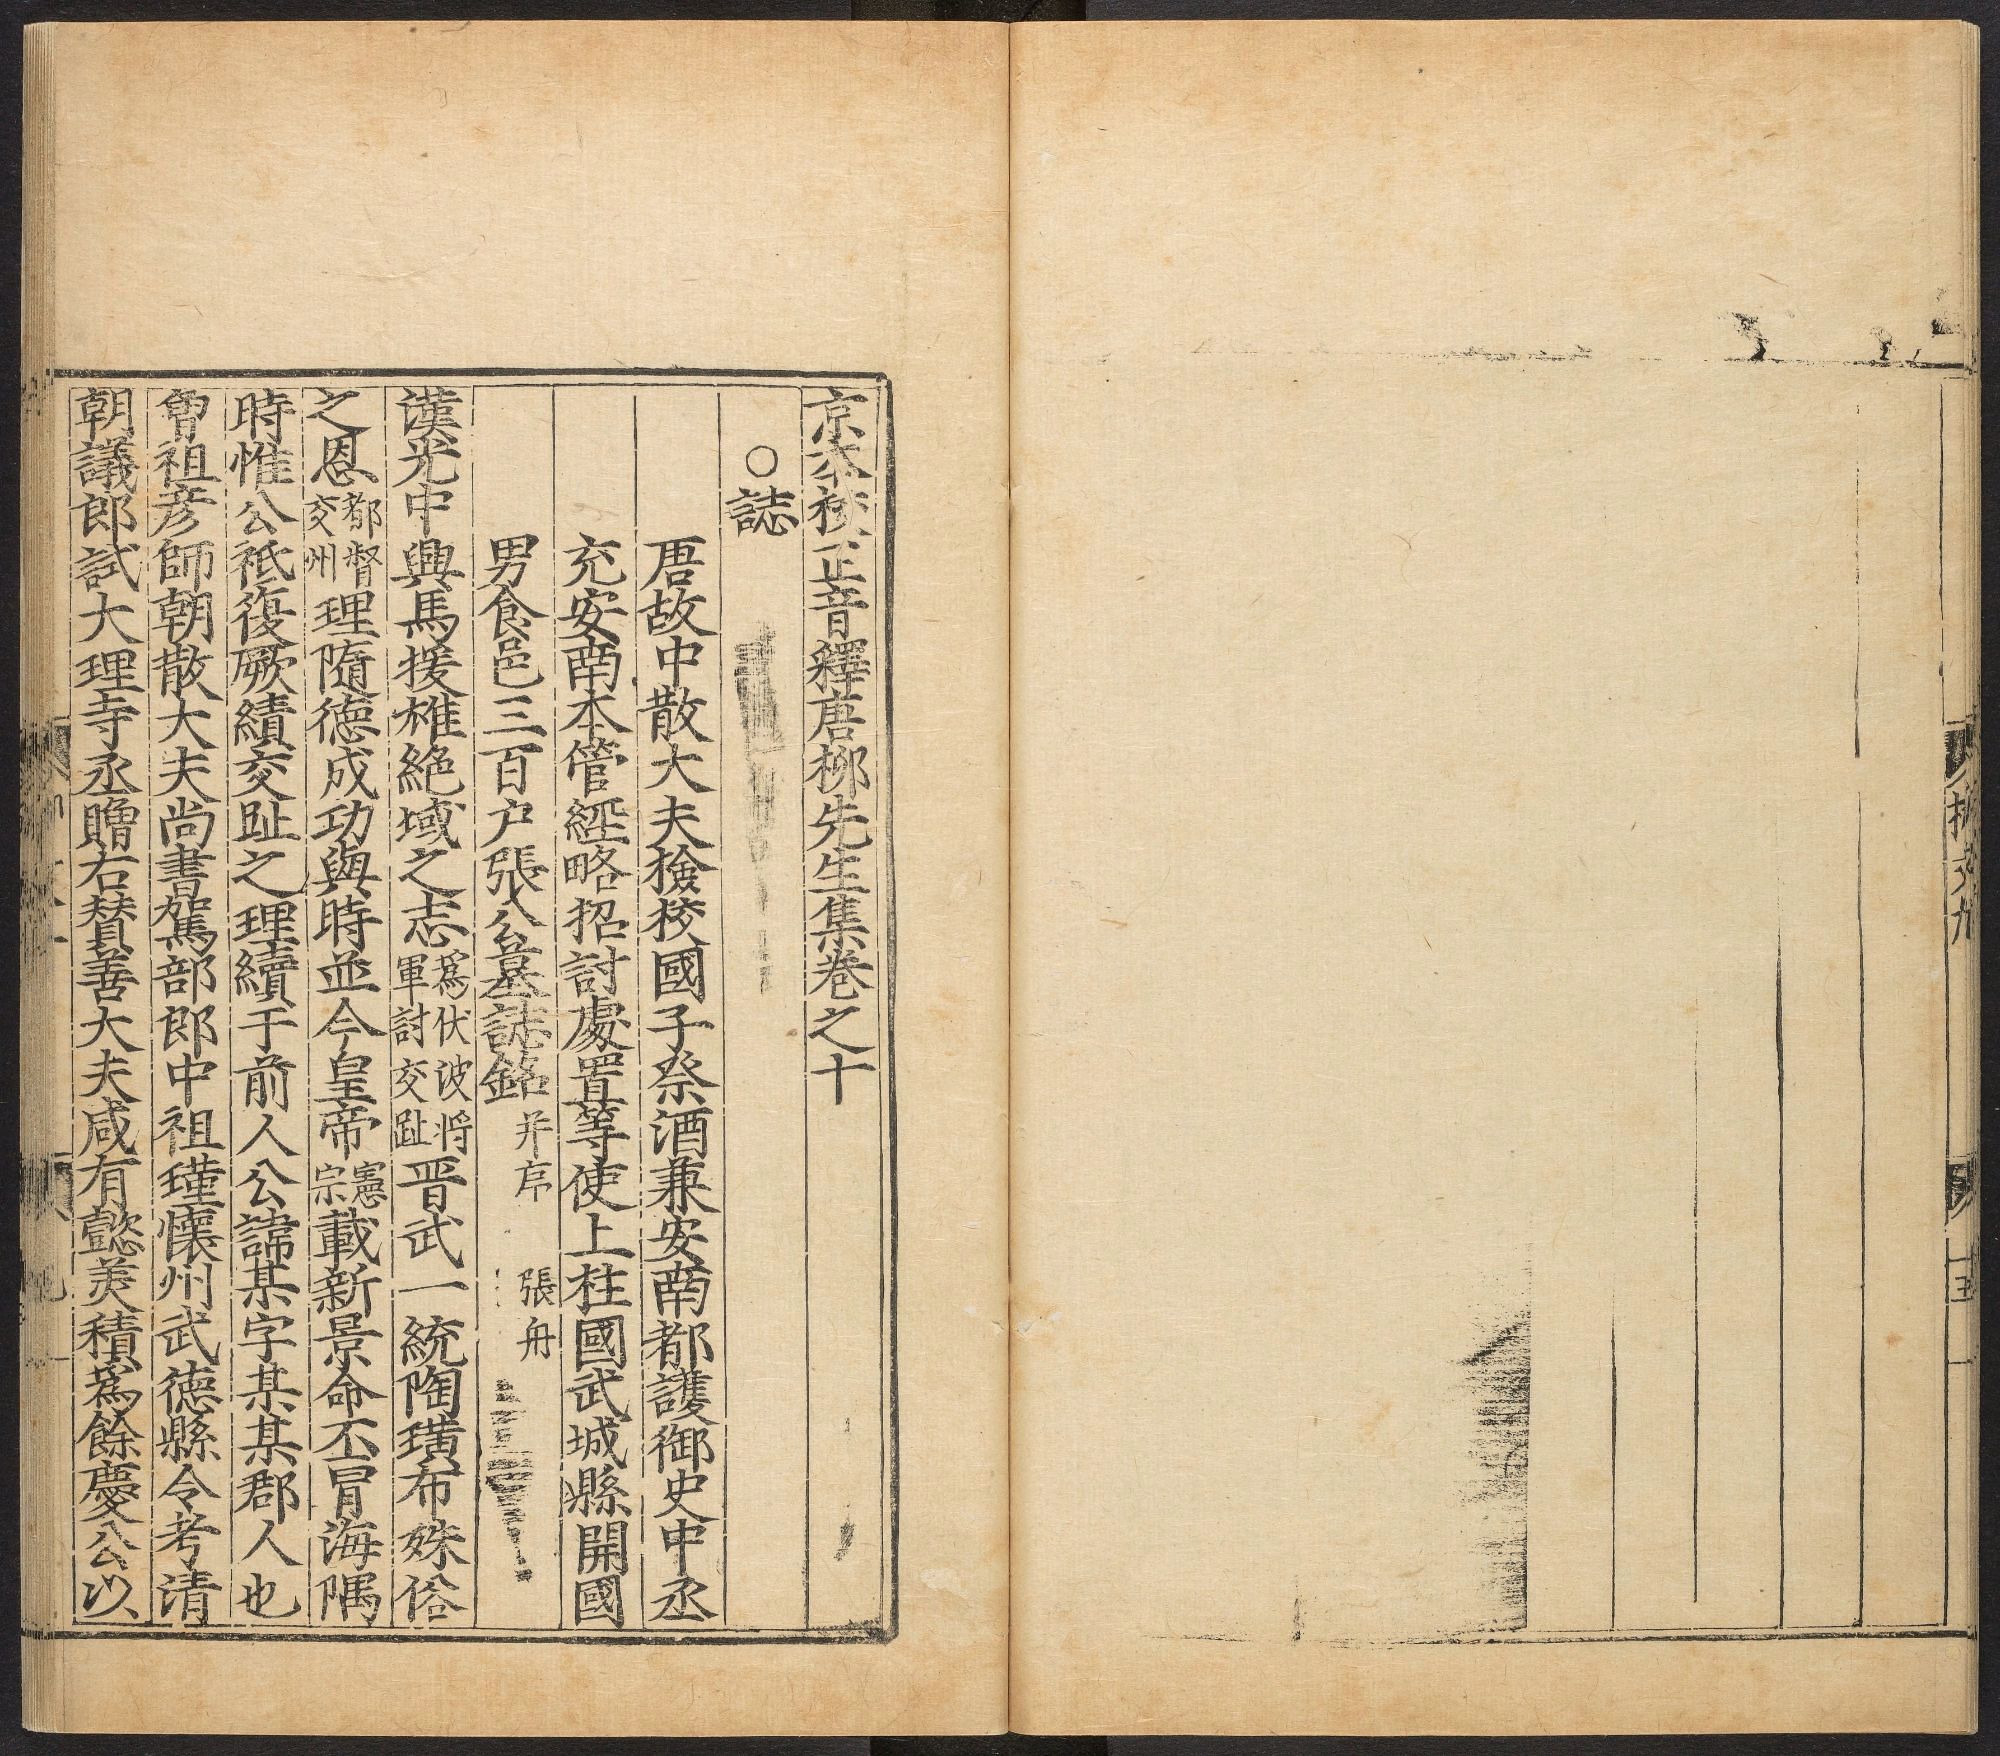 京本校正音釋唐柳先生集卷之十
○誌
唐故中散大夫檢校國子祭酒兼安南都護御史中丞
充安南本管經略招討處置等使上柱國武城縣開國
男食邑三百户張公墓誌銘并序 張舟
漢光中興馬援雄絶域之志爲伏波將軍討交趾晋武一統陶璜布姝俗
之恩都督交州理隨德成功與時並今皇帝憲宗載新景命丕冒海隅
時惟公祗復厥績交趾之理續于前人公諱某字某某郡人也
曾祖彦師朝散大夫尚書駕部郎中祖瑾懷州武德縣令考清
朝議郎試大理寺丞贈右賛善大夫咸有懿美積爲餘慶公以